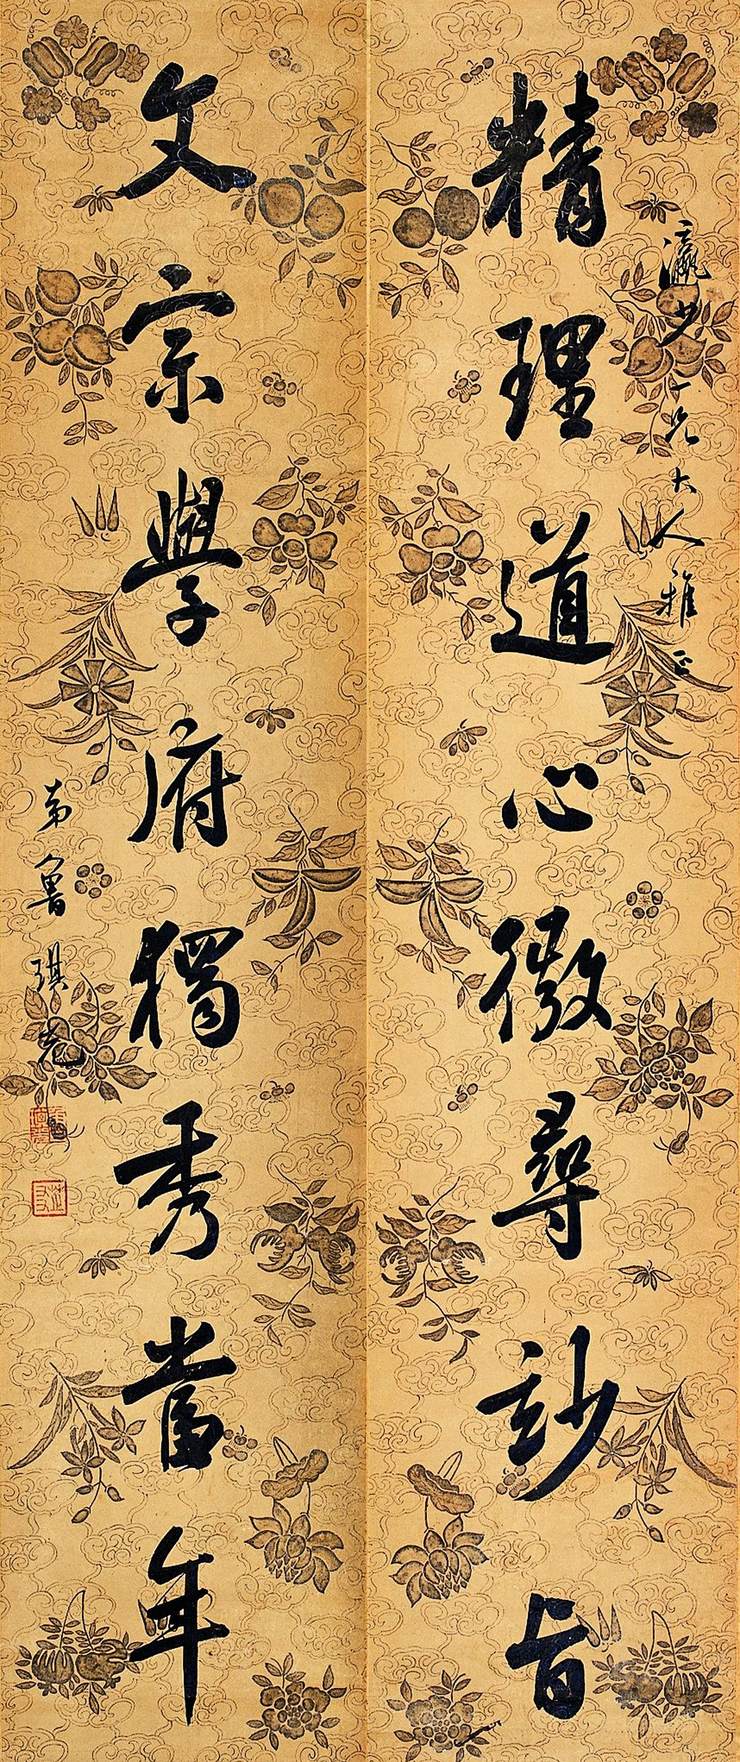 瀛仁兄大人雅正
精理道心微尋玅旨
文宗學府獨秀當年
弟魯琪光